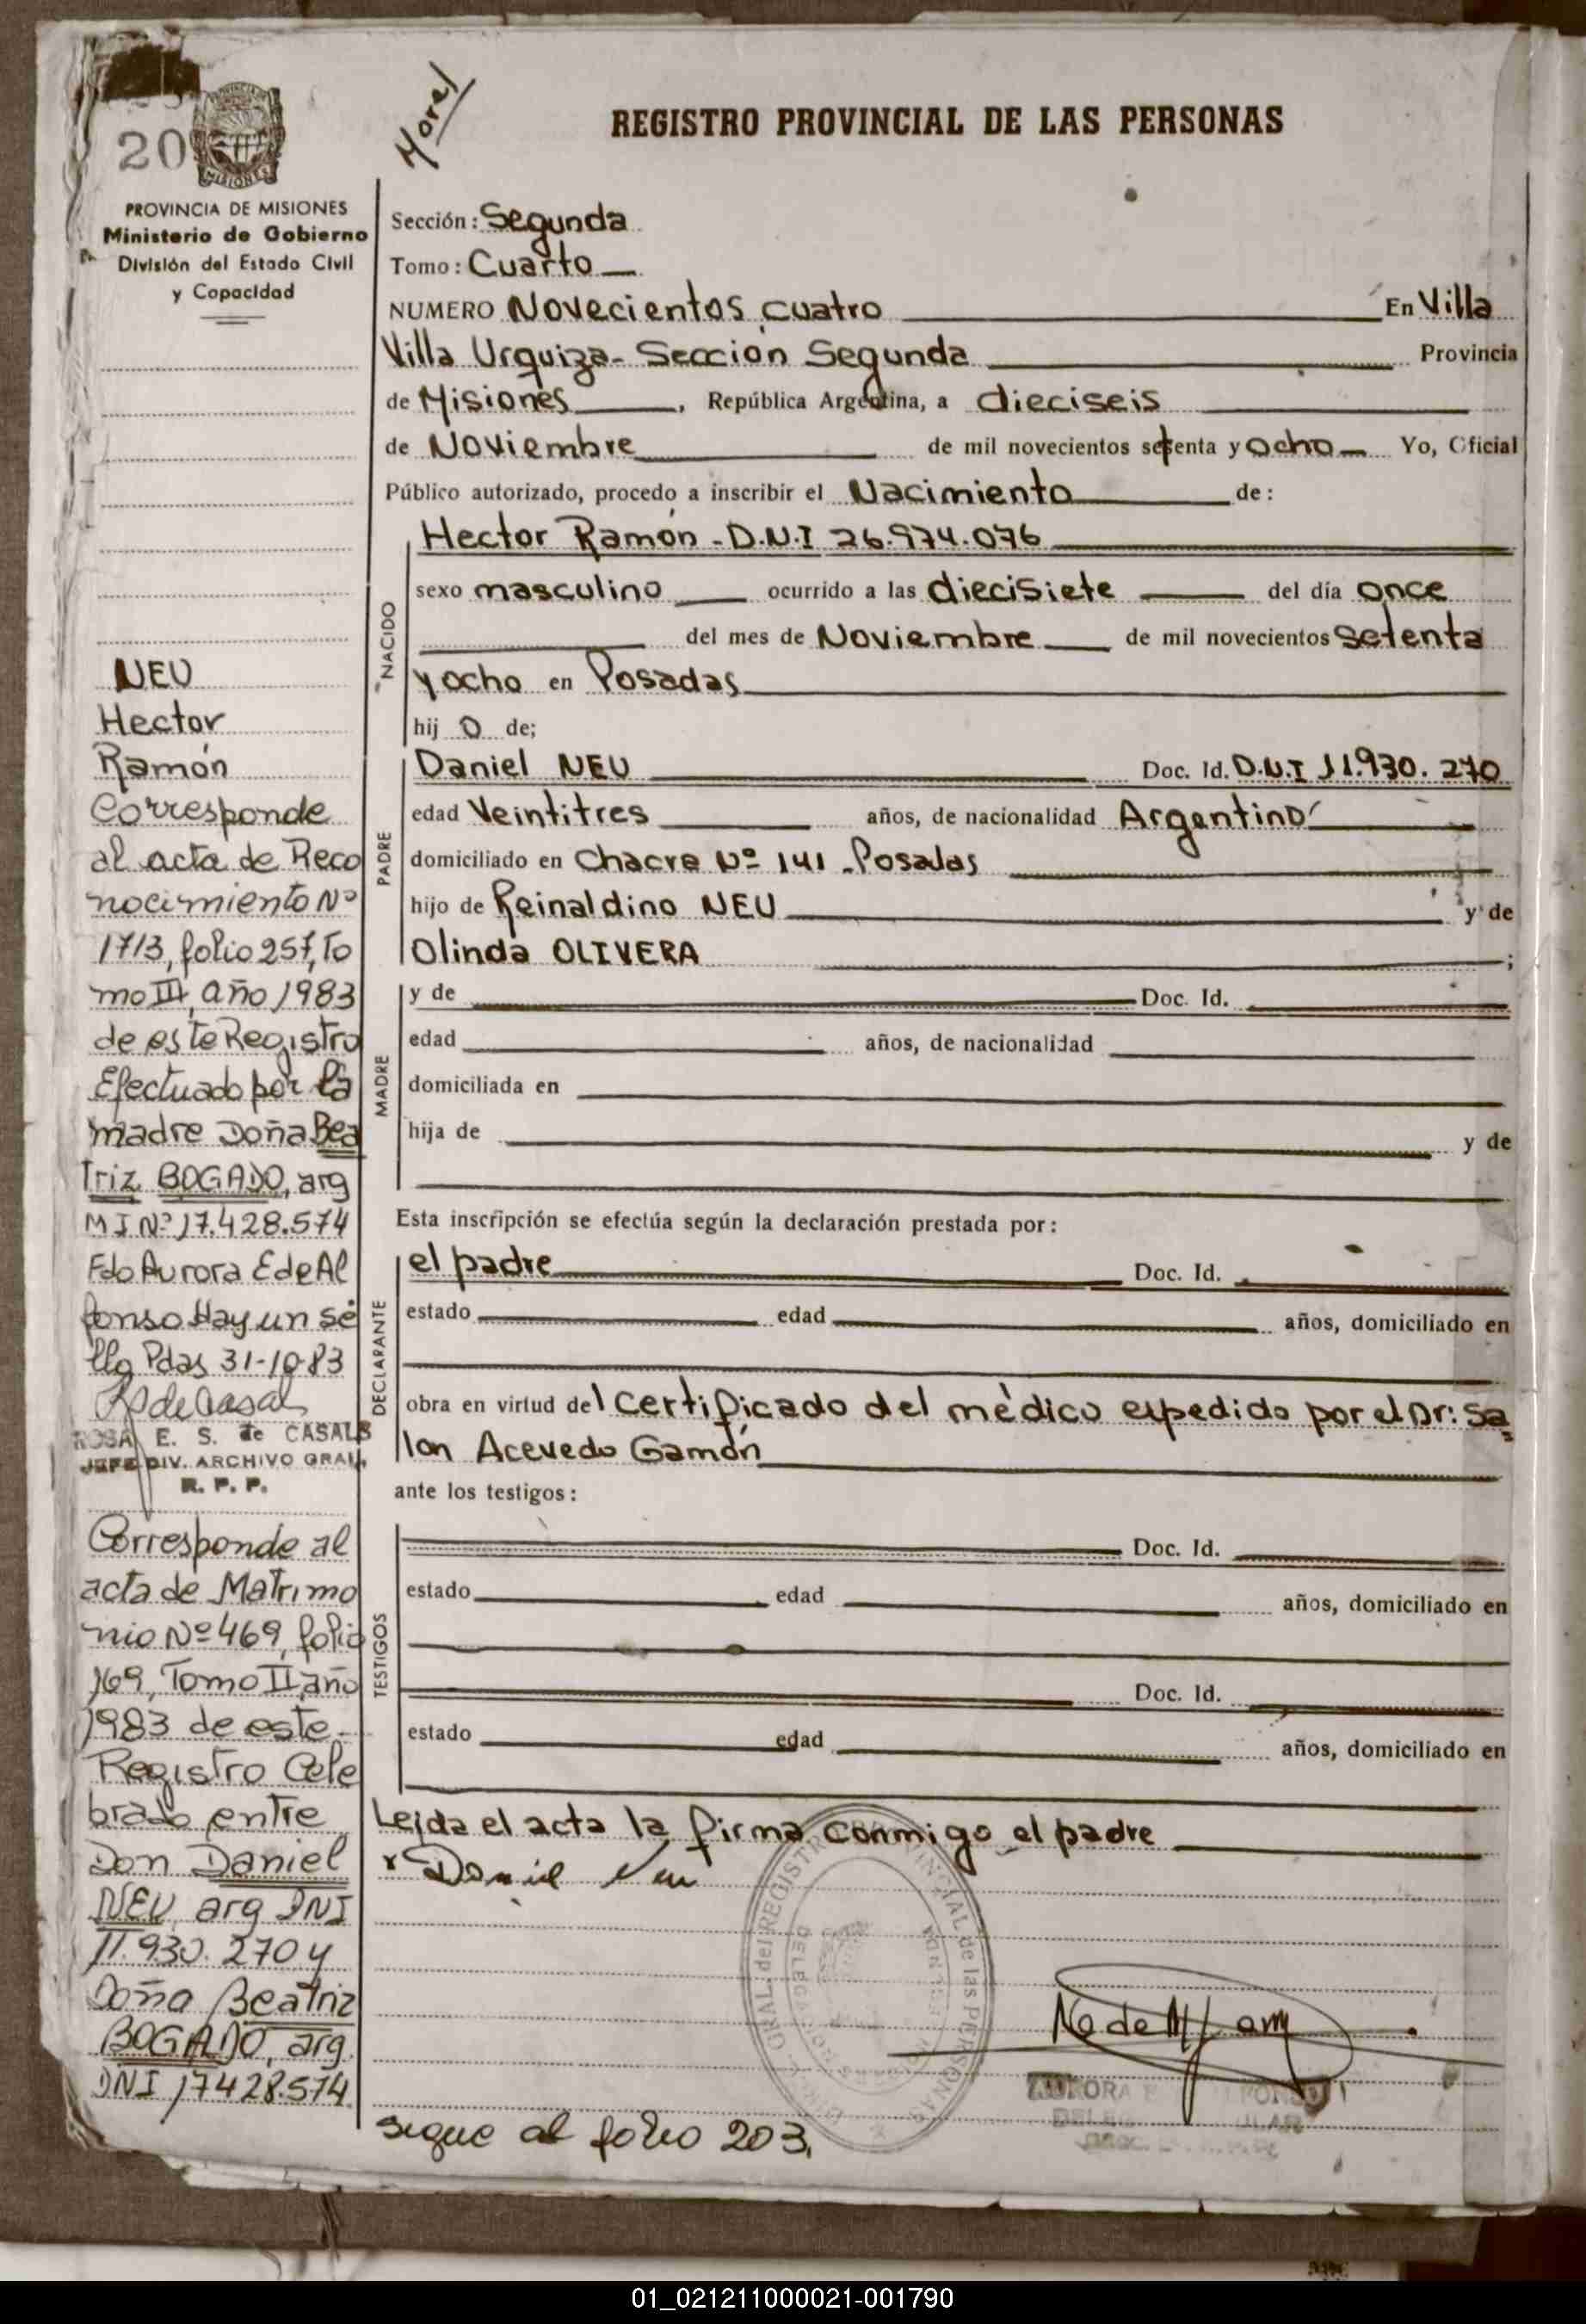 20
Morel
REGISTRO PROVINCIAL DE LAS PERSONAS
MISIONES
PROVINCIA DE MISIONES
Ministerio de Gobierno
División del Estado Civil
y Capacidad
Sección: Segunda
Tomo: Cuarto
NUMERO Novecientos cuatro En Villa
Villa Urquiza - Sección Segunda Provincia
de Misiones, República Argentina, a dieciseis
de Noviembre de mil novecientos setenta y ocho Yo, Oficial
Público autorizado, procedo a inscribir el Nacimiento de:
NACIDO
Hector Ramón - D.N.I 26.974.076
sexo masculino ocurrido a las diecisiete del día once
del mes de Noviembre de mil novecientos setenta
y ocho en Posadas
hij o de;
PADRE
Daniel NEU Doc. Id. D.N.I 11.930.270
edad Veintitres años, de nacionalidad Argentino
domiciliado en Chacra Nº 141 - Posadas
hijo de Reinaldino NEU y de
Olinda OLIVERA ;
MADRE
y de Doc. Id.
edad años, de nacionalidad
domiciliada en
hija de y de
Esta inscripción se efectúa según la declaración prestada por:
DECLARANTE
el padre Doc. Id.
estado edad años, domiciliado en
obra en virtud del certificado del mèdico expedido por el Dr: Sa
lon Acevedo Gamón
ante los testigos:
TESTIGOS
Doc. Id.
estado edad años, domiciliado en
Doc. Id.
estado edad años, domiciliado en
Leida el acta la firma conmigo el padre
x Daniel Neu
GRAL. del REGISTRO PROVINCIAL de las PERSONAS
AURORA
sigue al folio 203,
NEU
Hector
Ramón
Corresponde
al acta de Reco
nocimiento Nº
1713, folio 257, To
mo III, año 1983
de este Registro
Efectuado por la
madre Doña Bea
triz BOGADO, arg
M I Nº 17.428.574
Fdo Aurora E de Al
fonso Hay un se
llo Pdas 31-10-83
ROSA E. S. de CASALS
JEFE DIV. ARCHIVO GRAL.
R. P. P.
Corresponde al
acta de Matrimo
nio Nº 469, folio
169, Tomo II, año
1983 de este
Registro Cele
brado entre
Don Daniel
NEU, arg DNI
11.930.270 y
Doña Beatriz
BOGADO, arg.
DNI 17428.574
01_021211000021-001790